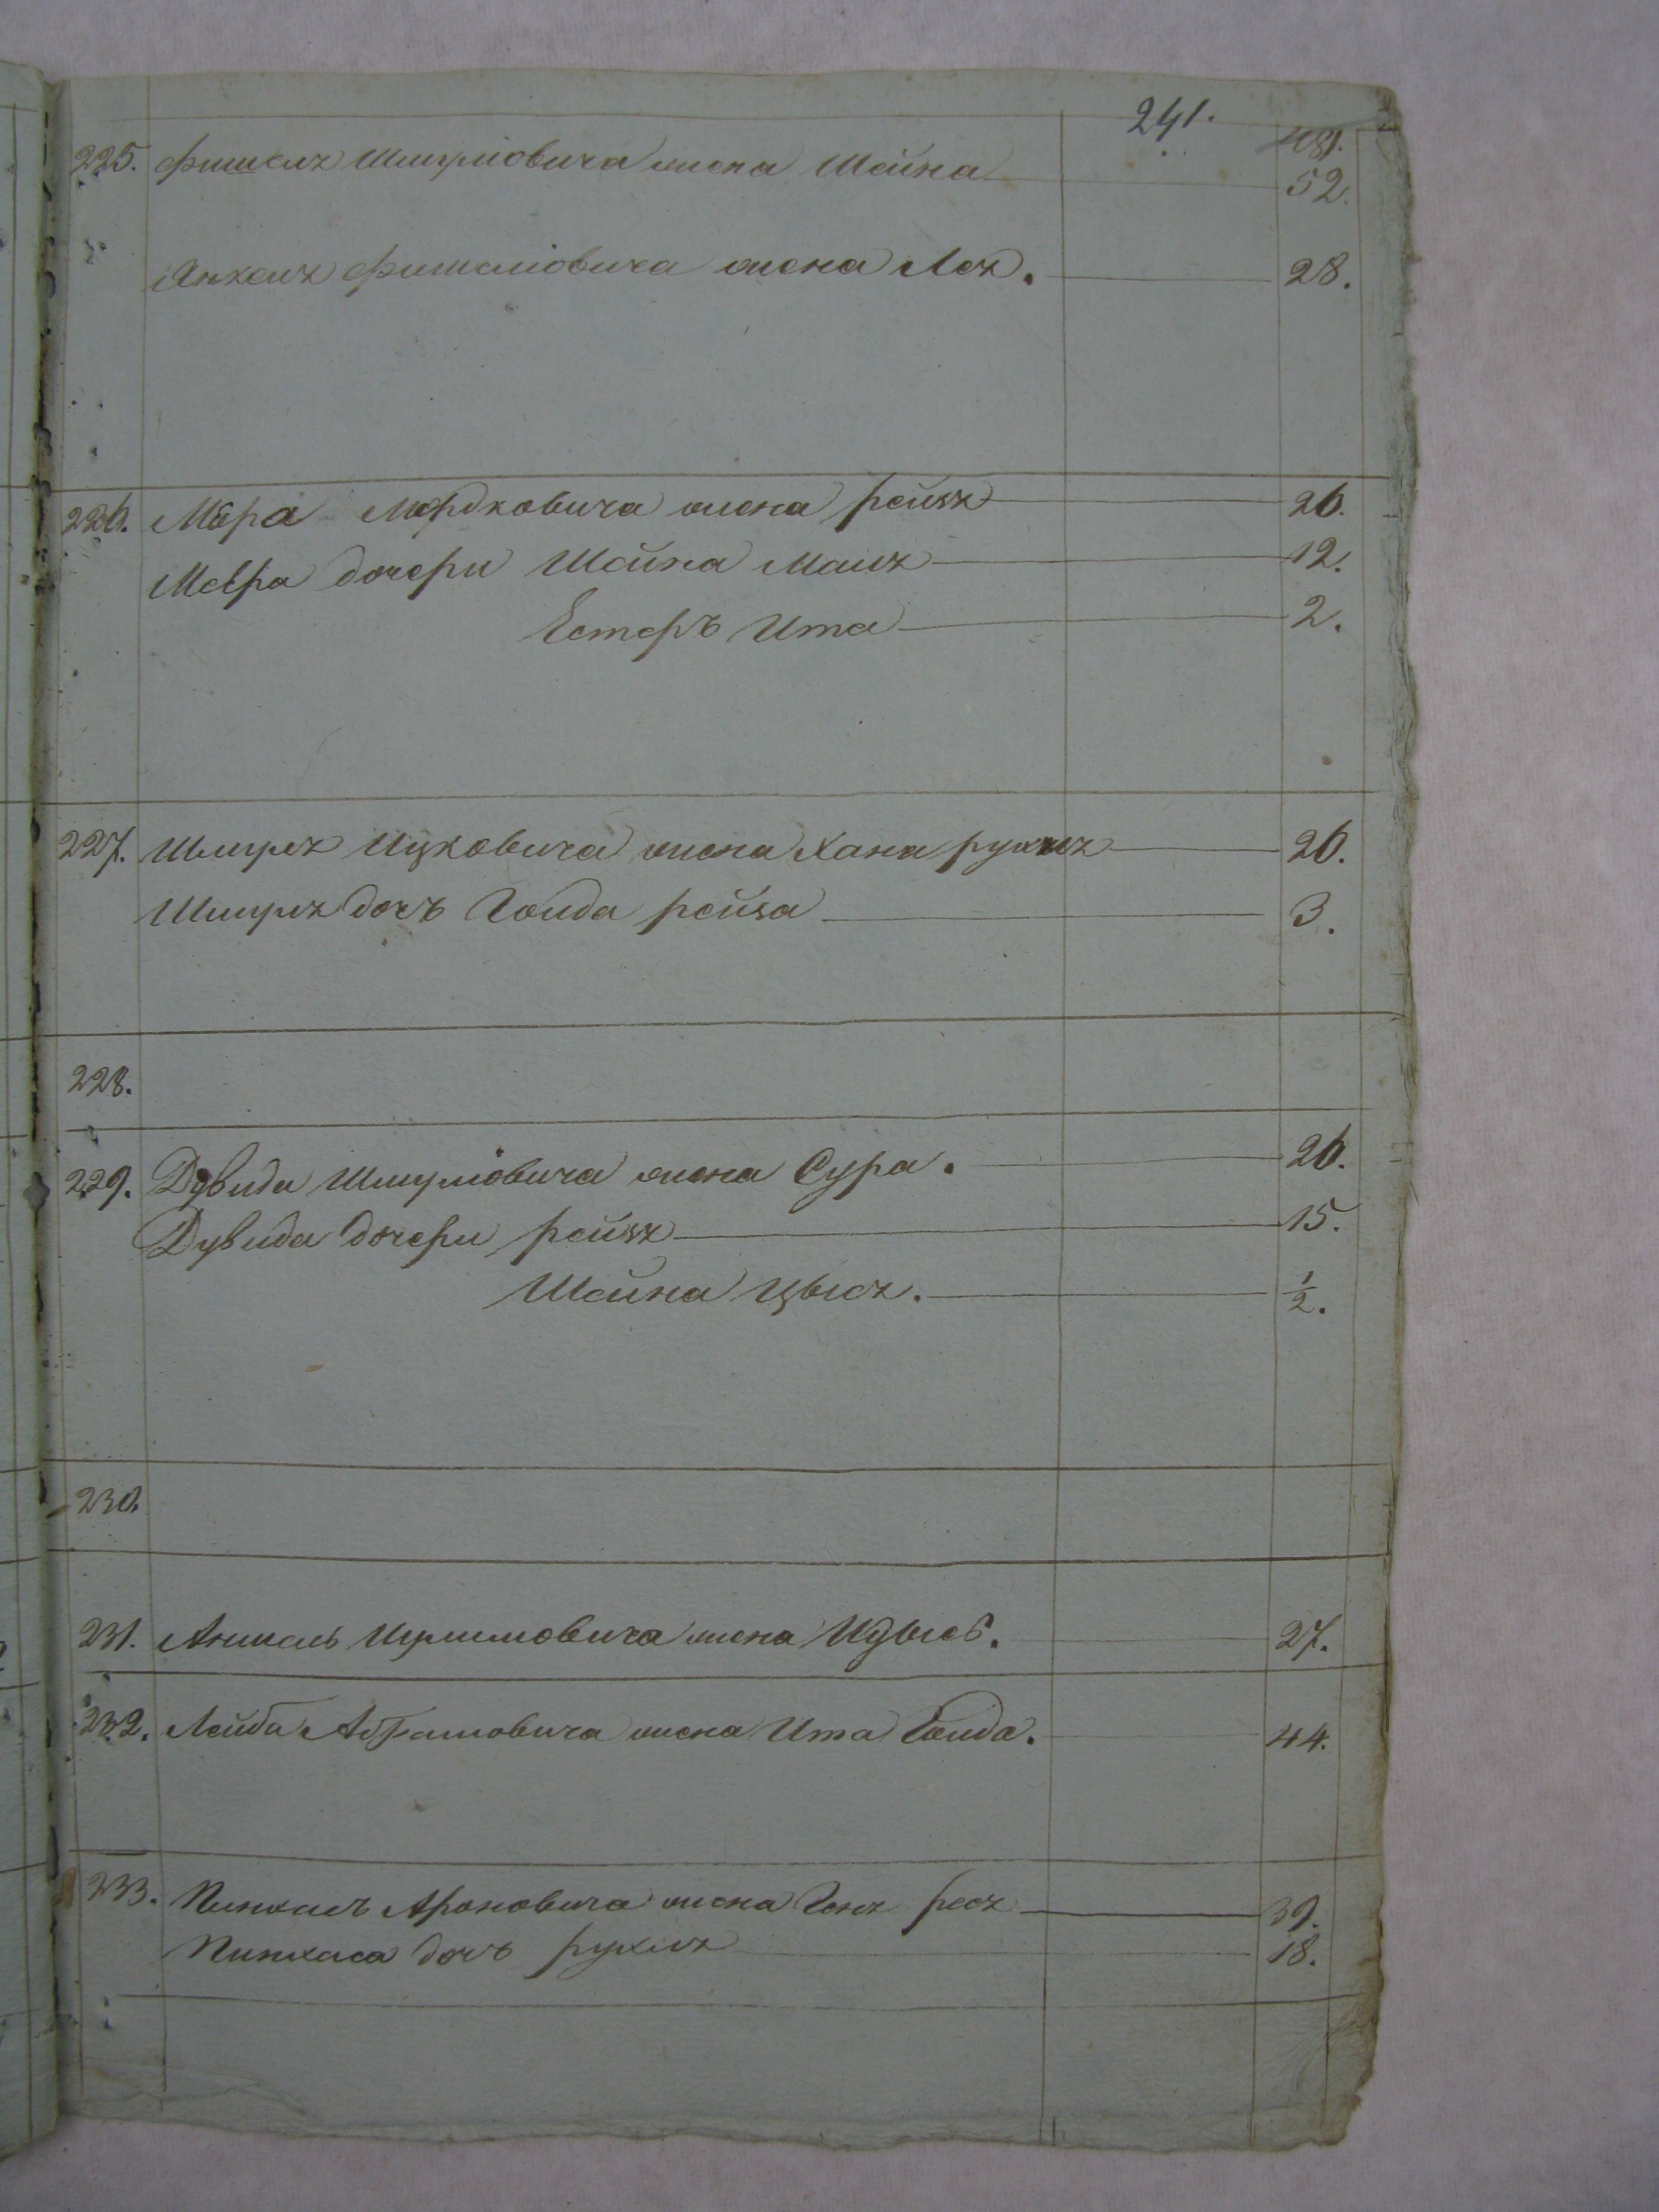 241.
481.
225. Фишеля Шмуліовича жена Шейна 52.
Янкеля Фишеліовича жена Лея. 28.
226. Меера Мордковича жена рейзя 26.
Меера дочери Шейна Маля 12.
Естеръ Ита 2.
227. Шмуля Ицковича жена Хана рухля 26.
Шмуля дочь Голда рейза 3.
228.
229. Дувида Шмуліовича жена Сура. 26.
Дувида дочери рейзя 15.
Шейна Цывя. ½.
230.
231. жена 27.
232. Лейба Абрамовича жена Ита Голда. 44.
233. Пинхасъ Ароновича жена Геня 39.
Пинхаса дочь рухля 18.